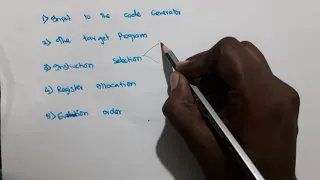 1) Input to the code Generator
2) The target Program
3) Instruction selection
4) Register allocation
5) Evaluation order